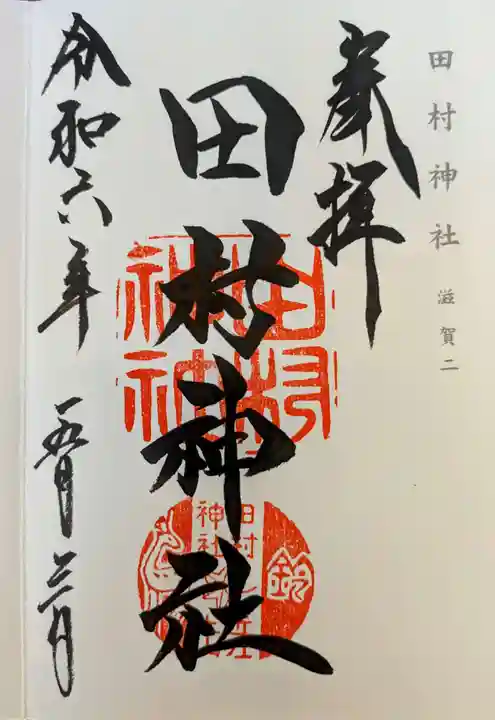 田村神社 滋賀二
奉拝
田村神社
田村
神社
田村
神社
鈴
令和六年
五月三日